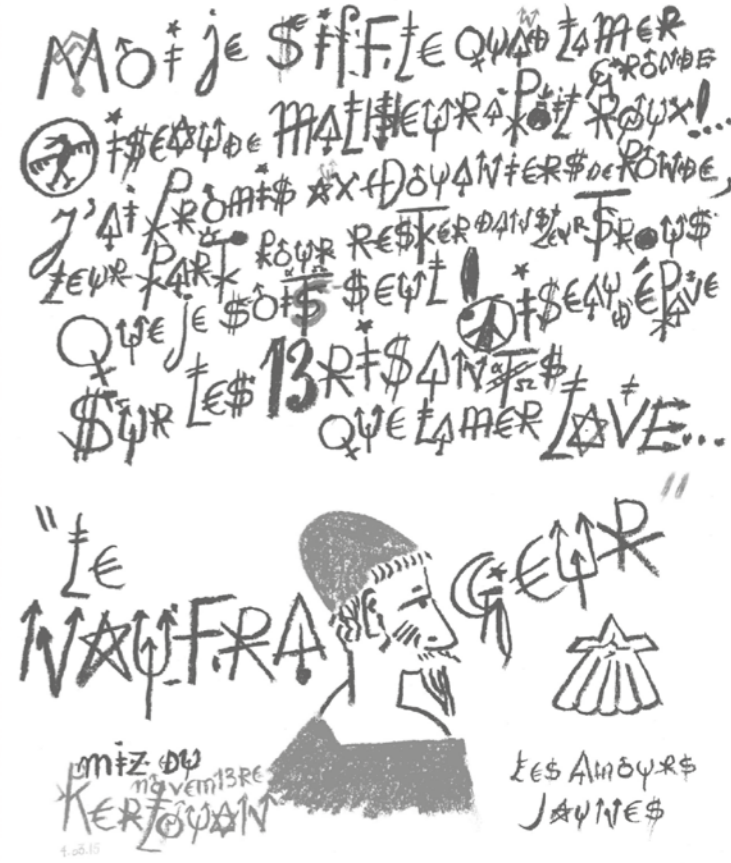 Moi je siffle quand la mer
gronde
Oiseau de malheur à poil roux!....
J'ai promis aux douaniers de ronde,
leur part pour rester dans leur trous
Que je sois seul! Oiseau d'épave
Sur les 13risants
que la mer lave...
"Le
Naufrageur"
miz du
novem13re
Kerlouan
Les Amours
Jaunes